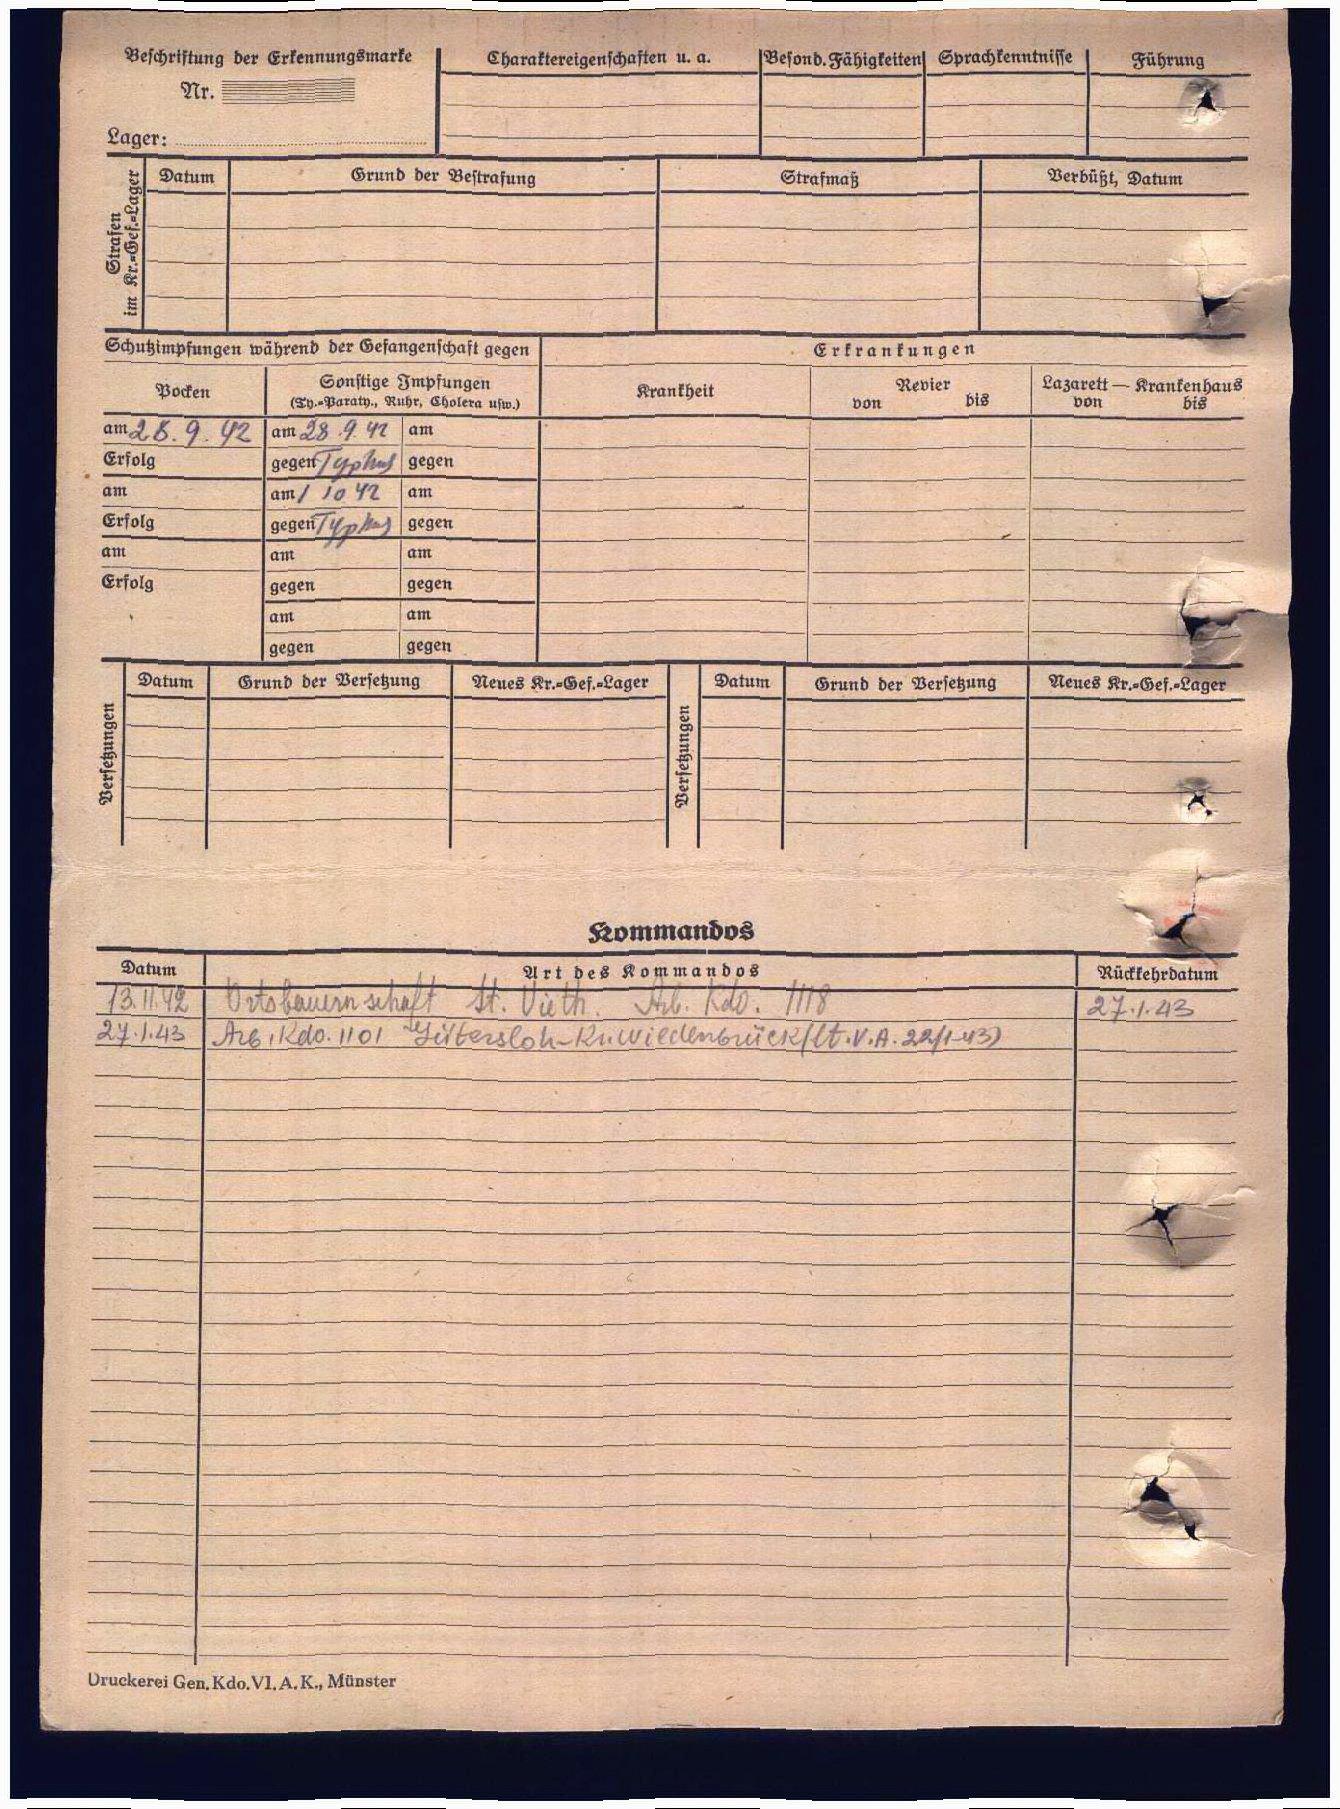 Beschriftung der Erkennungsmarke
Nr.
Lager:
Charaktereigenschaften u. a.
Besond. Fähigkeiten
Sprachkenntnisse
Führung
Strafen
im Kr.=Gef.=Lager
Datum
Grund der Bestrafung
Strafmaß
Verbüßt, Datum
Schutzimpfungen während der Gefangenschaft gegen
Erkrankungen
Pocken
Sonstige Impfungen
(Ty.=Paraty., Ruhr, Cholera usw.)
Krankheit
Revier
von bis
Lazarett — Krankenhaus
von bis
am 28.9.42 am 28.9.42 am
Erfolg gegen Typhus gegen
am am 1 10 42 am
Erfolg gegen Typhus gegen
am am am
Erfolg gegen gegen
am am
gegen gegen
Versetzungen
Datum Grund der Versetzung Neues Kr.=Gef.=Lager
Versetzungen
Datum Grund der Versetzung Neues Kr.=Gef.=Lager
Kommandos
Datum Art des Kommandos Rückkehrdatum
13.11.42 Ortsbauernschaft St. Vieth. Arb. Kdo. 1118 27.1.43
27.1.43 Arb. Kdo. 1101 Gütersloh-Kr. Wiedenbrück (lt. V.A. 22/1-43)
Druckerei Gen. Kdo. VI. A. K., Münster